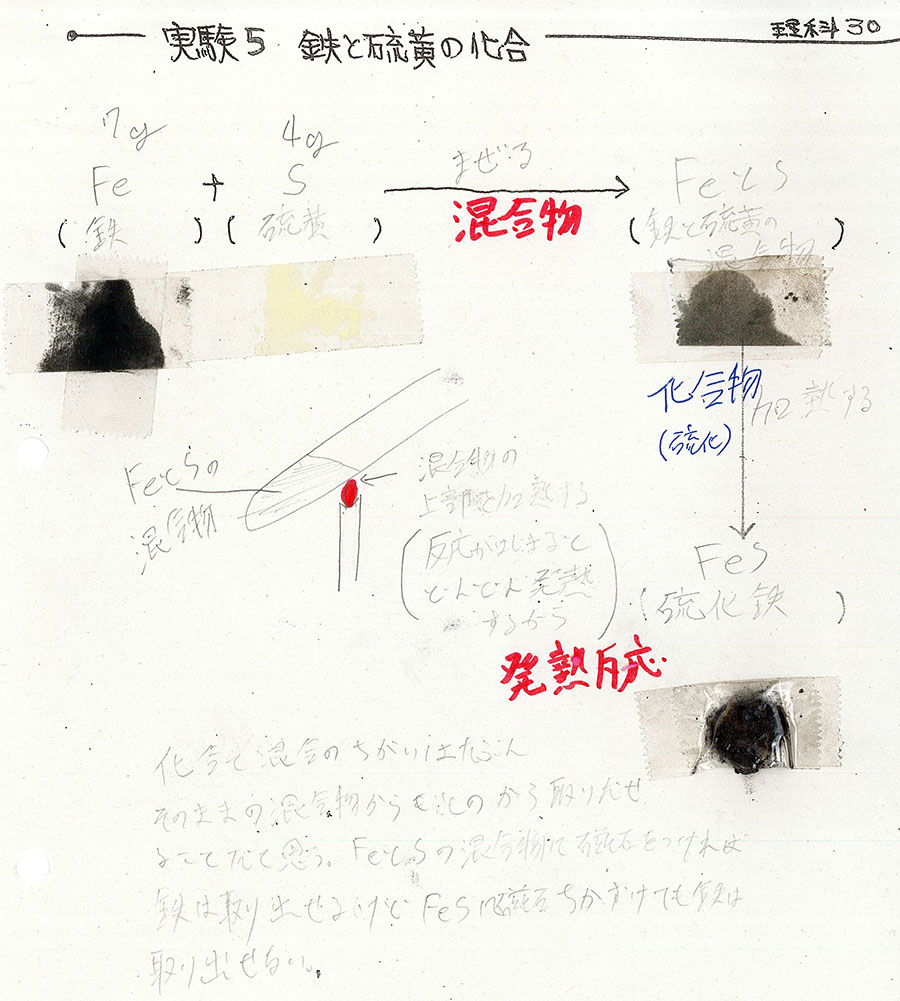 実験5 鉄と硫黄の化合
理科30
7g
4g
Fe + S
まぜる
FeとS
混合物
(鉄) (硫黄)
(鉄と硫黄の
混合物)
化合物
(硫化)
加熱する
FeとSの
混合物
混合物の
上部を加熱する
(反応がはじまると
どんどん発熱
するから)
FeS
(硫化鉄)
発熱反応
化合と混合のちがいはたぶん
そのままの混合物からもとのから取りだせ
ることだと思う。FeとSの混合物に磁石をつければ
鉄は取り出せるけどFeSに磁石ちかずけても鉄は
取り出せない。